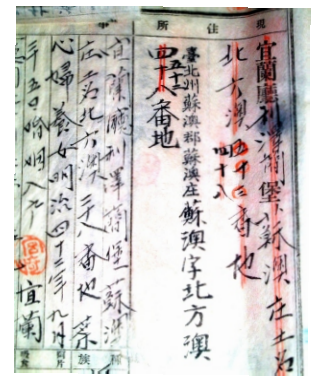 現住所
宜蘭廳利澤簡堡蘇澳庄土名
北方澳五十三番地
四十八
臺北州蘇澳郡蘇澳庄蘇澳字北方澳
五十三
四十八番地
宜蘭廳利澤簡堡蘇澳
庄土名北方澳三十八番地
心婦養女明治四十三年九月
三五日婚姻入戶
宜蘭
種族
阿片